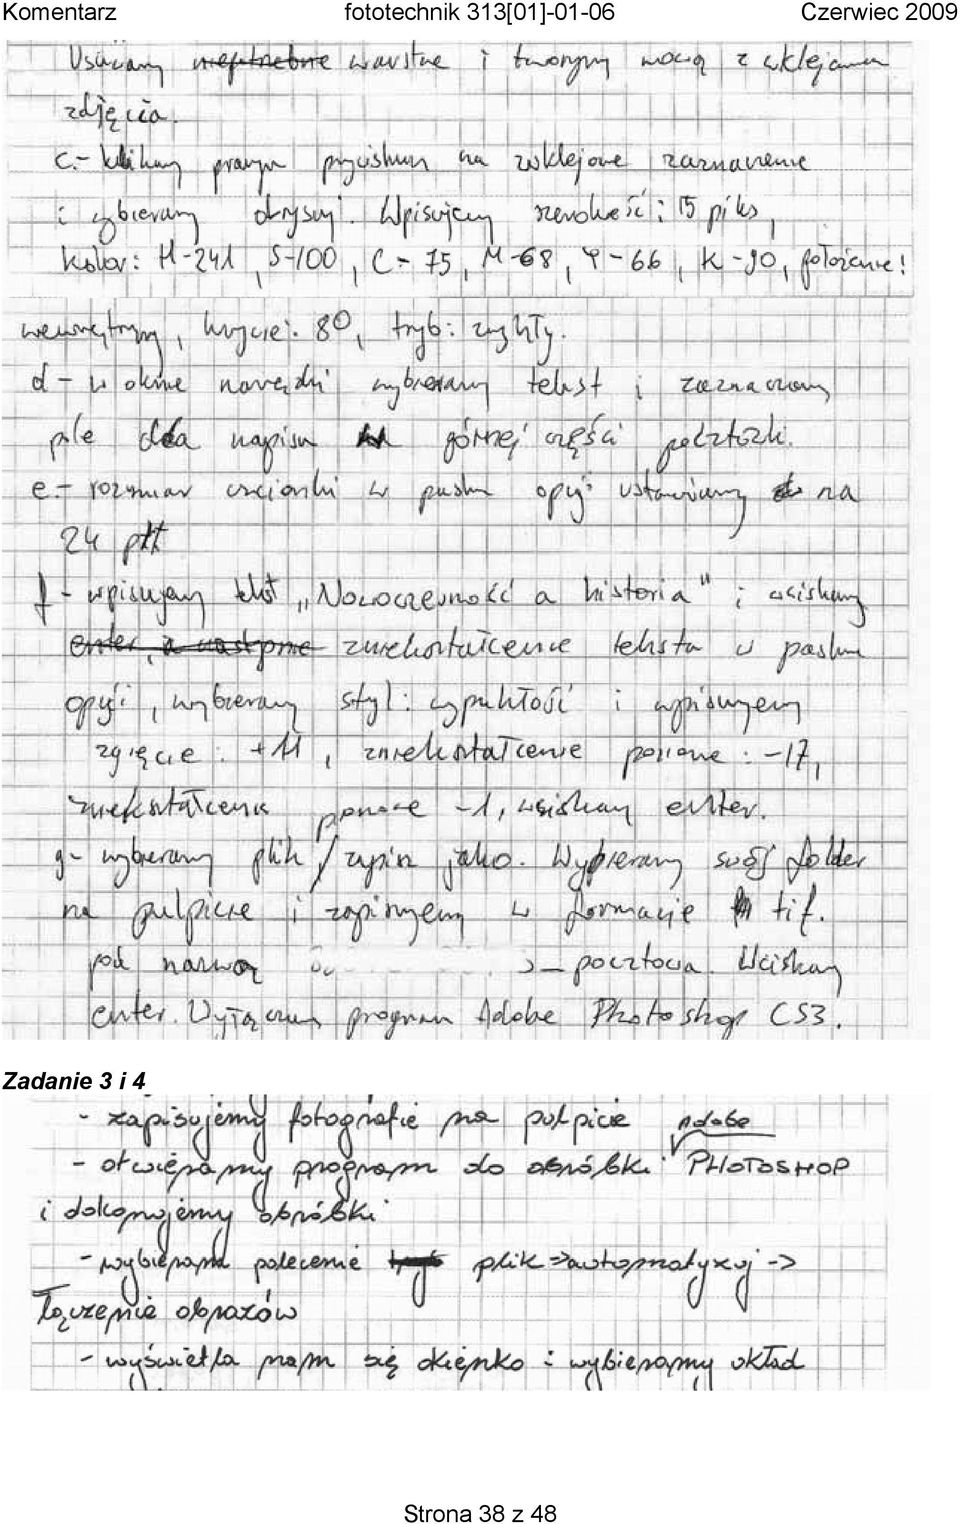 Komentarz fototechnik 313[01]-01-06 Czerwiec 2009
Usuwamy niepotrzebne warstwe i tworzymy nową z wklejania
zdjęcia.
c.- klikamy prawym przyciskiem na wklejone zaznaczenie
i wybieramy obrysuj. Wpisujemy szerokość: 15 piks,
kolor: H-241, S-100, C-75, M-68, Y-66, K-90, położenie:
wewnętrzny, krycie: 80, tryb: zwykły.
d - w oknie narzędzi wybieramy tekst i zaznaczamy
pole dla napisu górnej części pocztówki.
e.- rozmiar czcionki w pasku opcji ustawiamy na
24 pkt
f - wpisujemy tekst „Nowoczesność a historia" i wciskamy
enter, a następnie zniekształcenie tekstu w pasku
opcji, wybieramy styl: wypukłość i wpisujemy
zgięcie: +11, zniekształcenie poziome: -17,
zniekształcenie pionowe -1, wciskamy enter.
g- wybieramy plik / zapisz jako. Wybieramy swój folder
na pulpicie i zapisujemy w formacie tif.
pod nazwą _pocztowa. Wciskamy
enter. Wyłączamy program Adobe Photoshop CS3.
Zadanie 3 i 4
- zapisujemy fotografie na pulpicie Adobe
- otwieramy program do obróbki PHOTOSHOP
i dokonujemy obróbki
- wybieramy polecenie plik -> automatyzuj ->
łączenie obrazów
- wyświetla nam się okienko i wybieramy układ
Strona 38 z 48